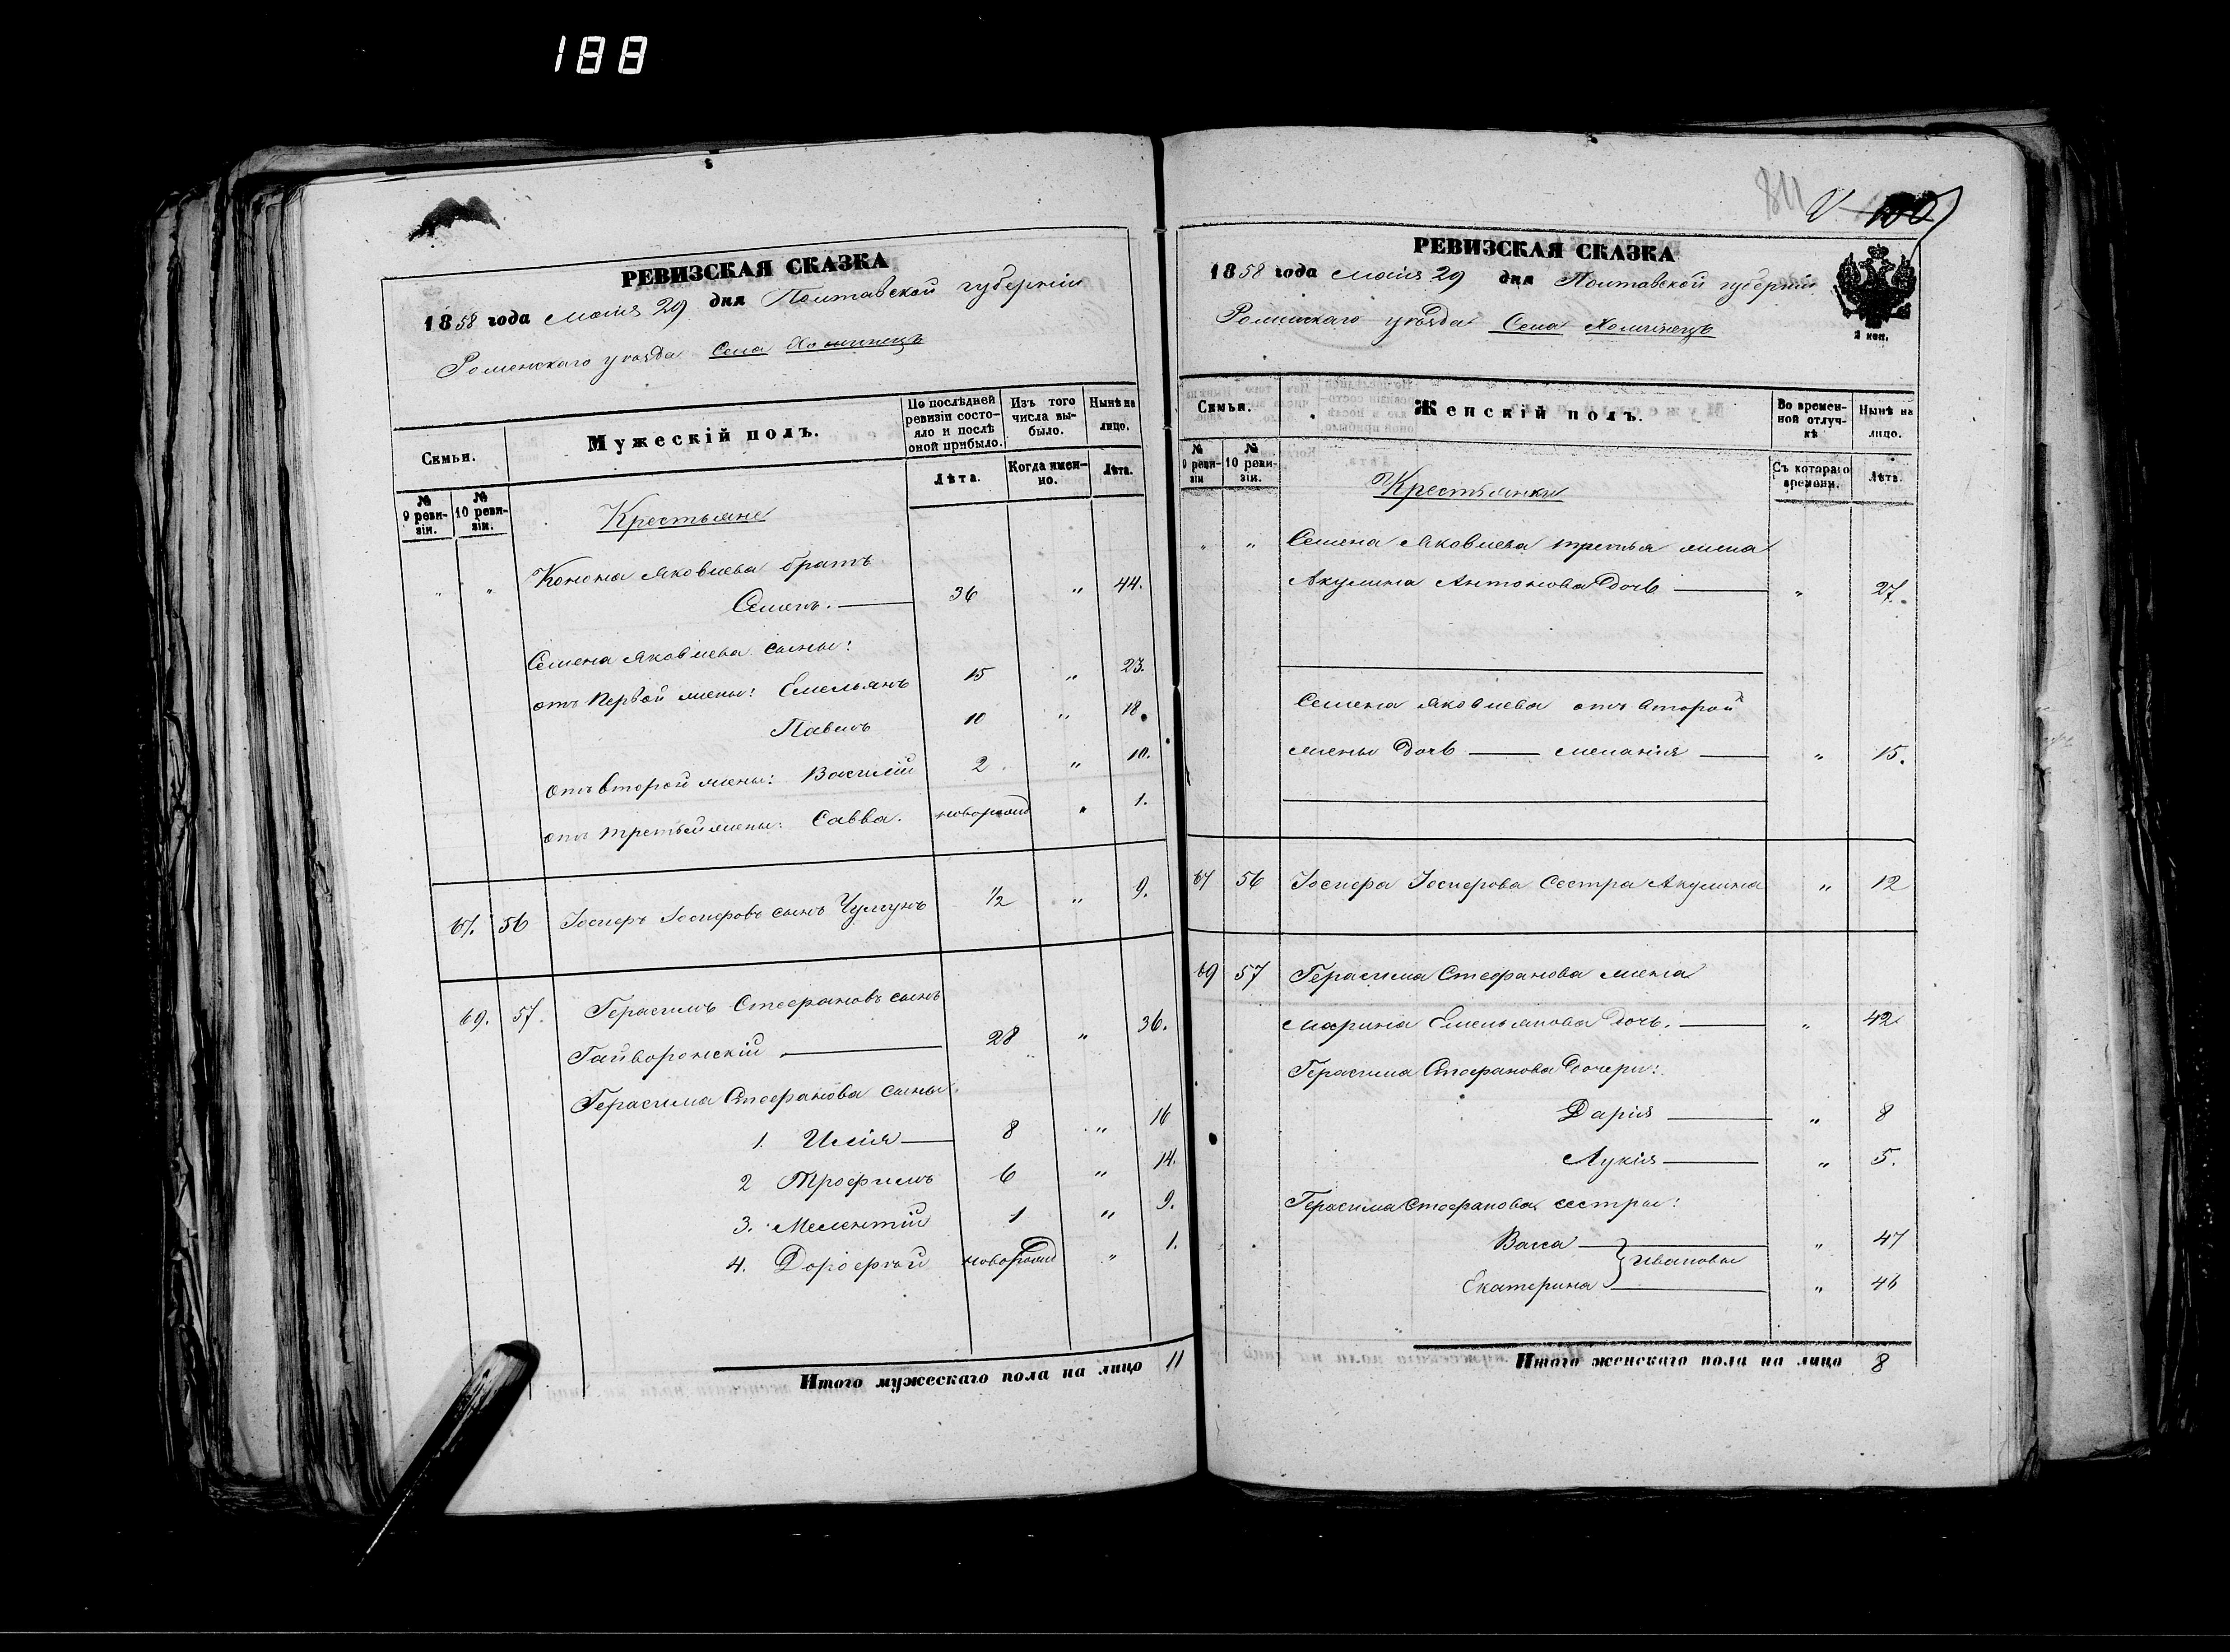 188
РЕВИЗСКАЯ СКАЗКА
1858 года Маія 29 дня Полтавской губерніи
Роменскаго уѣзда Села Хоминецъ
Семьи.
Мужескій полъ.
По послѣдней ревизіи состояло и послѣ оной прибыло.
Изъ того числа выбыло.
Нынѣ на лицо.
№ 9 ревизіи.
№ 10 ревизіи.
Лѣта.
Когда именно.
Лѣта.
Крестьяне
" " Конона Яковлева братъ
Семенъ. 36 " 44.
Семена Яковлева сыны:
отъ первой жены: Емельянъ 15 " 23.
Павелъ 10 " 18.
отъ второй жены: Василій 2 " 10.
отъ третьей жены: Савва. новорожд " 1.
67. 56 Іосифъ Іосифовъ сынъ ½ " 9.
69. 57. Герасимъ Стефановъ сынъ
Гайворонскій 28 " 36.
Герасима Стефанова сыны
1. Илія 8 " 16
2 Трофимъ 6 " 14.
3. Мелентій 1 " 9.
4. Дорофей новорожд " 1.
Итого мужескаго пола на лицо 11
811
РЕВИЗСКАЯ СКАЗКА
1858 года Маія 29 дня Полтавской губерніи
Роменскаго уѣзда Села Хоминецъ
2 коп.
Семьи.
Женскій полъ.
Во временной отлучкѣ
Нынѣ на лицо.
№ 9 ревизіи
№ 10 ревизіи.
Съ котораго времени.
Лѣта.
Крестьянки
" " Семена Яковлева третья жена
Акулина Антонова дочь " 27.
Семена Яковлева отъ второй
жены дочь Меланія " 15.
67 56 Іосифа Іосифова сестра Акулина " 12
69 57 Герасима Стефанова жена
Марина Емельянова дочь. " 42
Герасима Стефанова дочери:
Дарія " 8
Лукія " 5.
Герасима Стефанова сестры:
Васса " 47
Ивановы
Екатерина " 46
Итого женскаго пола на лицо 8